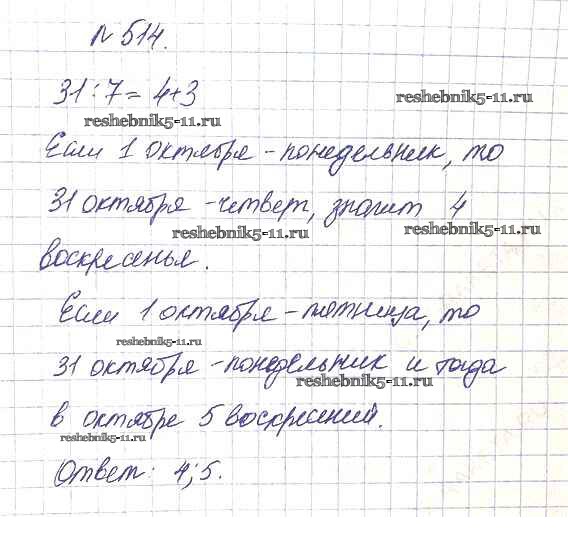 № 514.
31 : 7 = 4+3
reshebnik5-11.ru
reshebnik5-11.ru
Если 1 октября - понедельник, то
31 октября - четверг, значит 4
reshebnik5-11.ru
reshebnik5-11.ru
воскресенья.
Если 1 октября - пятница, то
reshebnik5-11.ru
31 октября - понедельник и тогда
reshebnik5-11.ru
в октябре 5 воскресений.
reshebnik5-11.ru
Ответ: 4; 5.